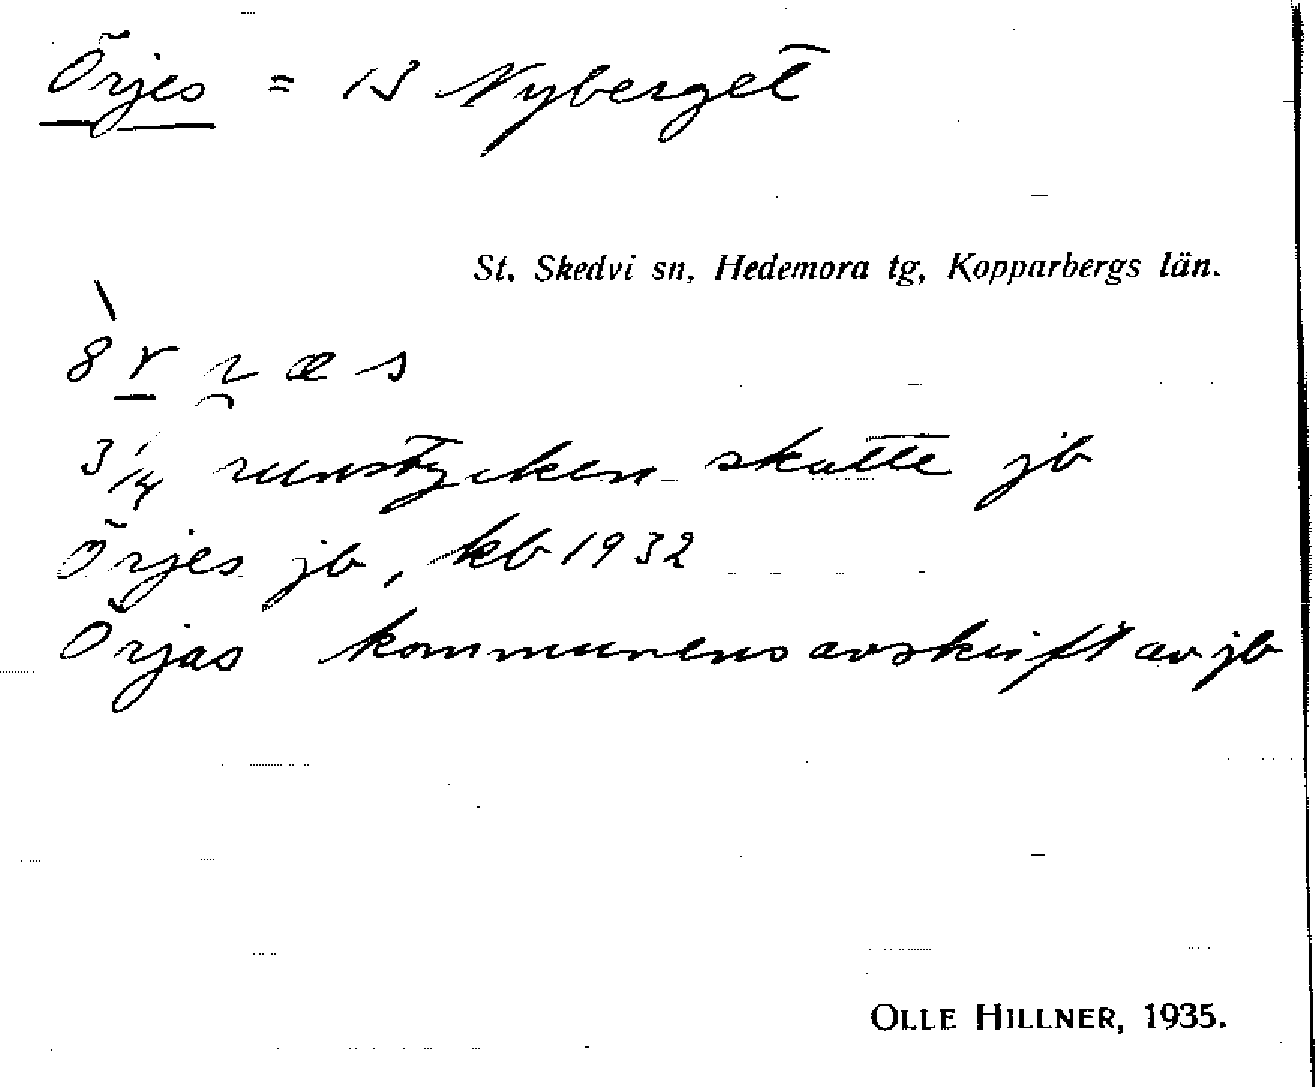 Örjes = 13 Nyberget
St. Skedvi sn, Hedemora tg, Kopparbergs län.
3 1/4 runstycken skatte jb
Örjes jb, kb 1932
Örjas kommunens avskrift av jb
OLLE HILLNER, 1935.